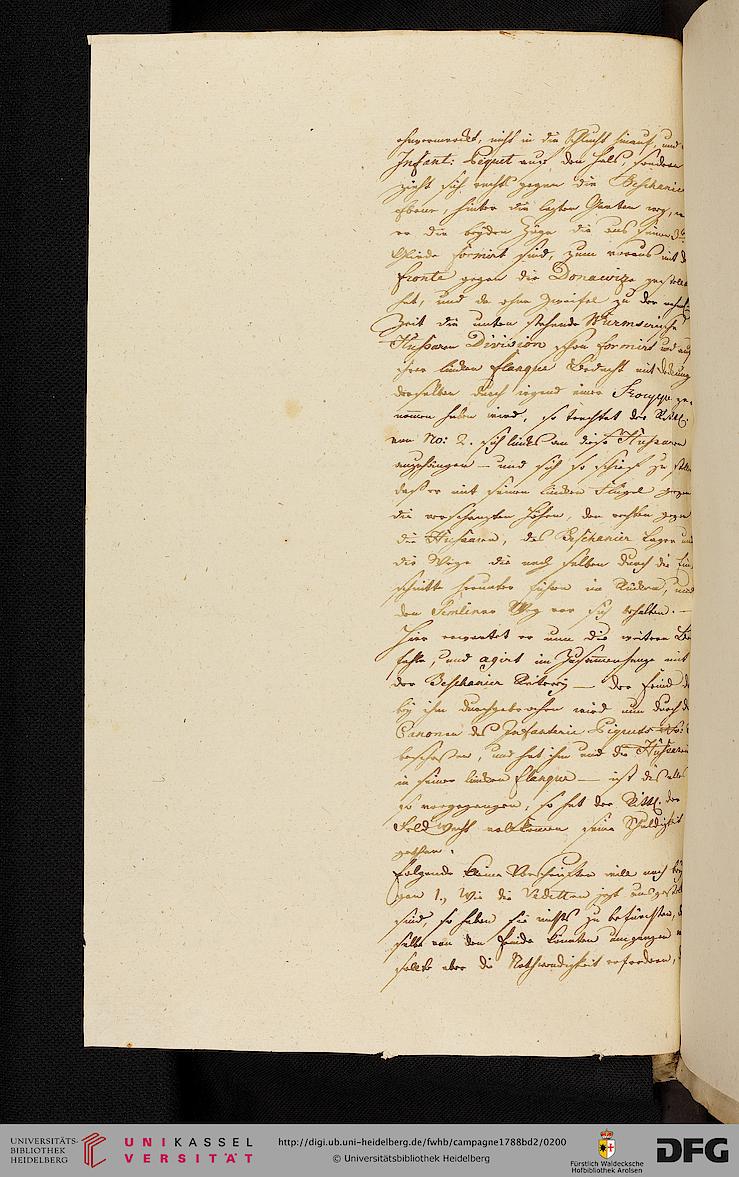 ohnvermerckt, nicht in die Schlucht hinauf, und
Infant: Piquet aus, den Hals, sondern
zieht sich rechts gegen die Beschanier
hinter die lezten Garten weg,
er die beyden Züge die aus seinen
Glieder formirt sind, zum voraus mit d
Fronte gegen die Donawize gestellt
hat, und da ohne Zweifel zu der
Zeit die unten stehende Wurmserische
Husaren Division schon formirt und auf
ihre linken Flanque Bedacht mit Deckung
derselben durch irgend einen Trouppe ge-
nommen haben wird, so trachtet der Rittl.
von No: 2. sich links an diese Husaren
anzuhängen – und sich so schief zu stellen
daß er mit seinen linken Flügel gegen
die verschanzten Höhen, den rechten gegen
die Husaren, das Beschanier Lager und
die Wege die nach selben durch die Ein-
schnitte herunter führen im Rücken, und
den Semliner Weg vor sich behalten. –
Hier erwartet er nun die weitern Be-
fehle, und agirt im Zusammenhange mit
der Beschanier Reiterey – der Feind d
bey ihm durchgebrochen wird nun durch d
Canonen des Infanterie Piquets No:
beschossen, und hat ihn und die Husaren
in seiner linken Flanque – ist das alles
so vorgegangen, so hat der Rittl. der
Feld Wacht vollkomen seine Schuldigkeit
gethan.
Folgende kleine Vorschriften will noch bey-
gen 1., Wie die Vedetten jezt ausgestellt
sind, so haben sie nichts zu befürchten, d
selbe von den Feinde könnten umgangen
sollte aber die Nothwendigkeit erfordern,
UNIVERSITÄTS-
BIBLIOTHEK
HEIDELBERG
UNIKASSEL
VERSITÄT
http://digi.ub.uni-heidelberg.de/fwhb/campagne1788bd2/0200
© Universitätsbibliothek Heidelberg
Fürstlich Waldecksche
Hofbibliothek Arolsen
DFG